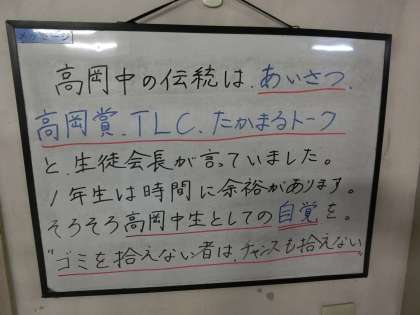 メッセージ
高岡中の伝統は、あいさつ、
高岡賞、TLC、たかまるトーク
と、生徒会長が言っていました。
1年生は時間に余裕があります。
そろそろ高岡中生としての自覚を。
"ゴミを拾えない者は、チャンスも拾えない"